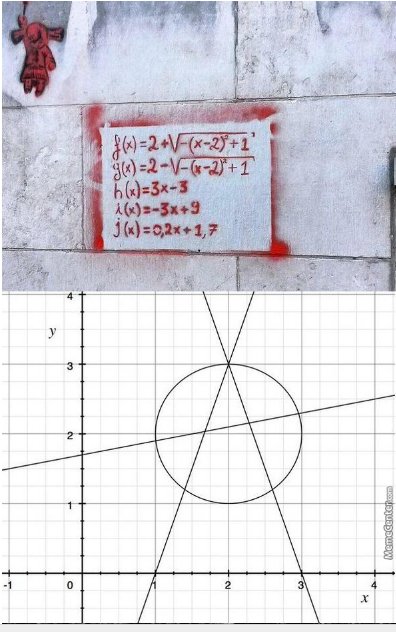 f(x)=2+√-(x-2)²+1
g(x)=2-√-(x-2)²+1
h(x)=3x-3
i(x)=-3x+9
j(x)=0,2x+1,7
4
y
3
2
1
-1 0 1 2 3 4
x
MemeCenter.com